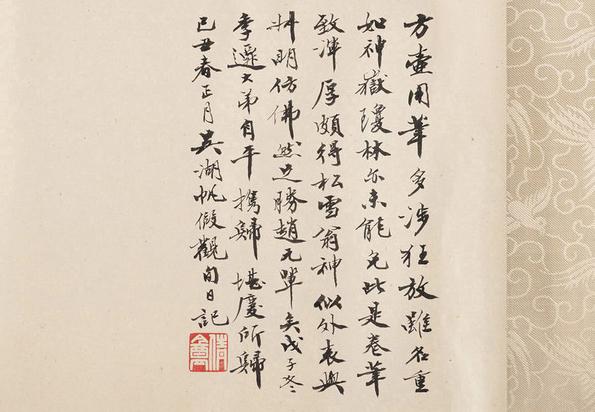 方壺用筆多涉狂放雖名重
如神嶽瓊林亦未能免此是卷筆
致渾厚頗得松雪翁神似外表與
叔明仿佛然足勝趙元輩矣戊子冬
季遷大弟自平攜歸堪慶所歸
己丑春正月吳湖帆假觀旬日記
倩盦